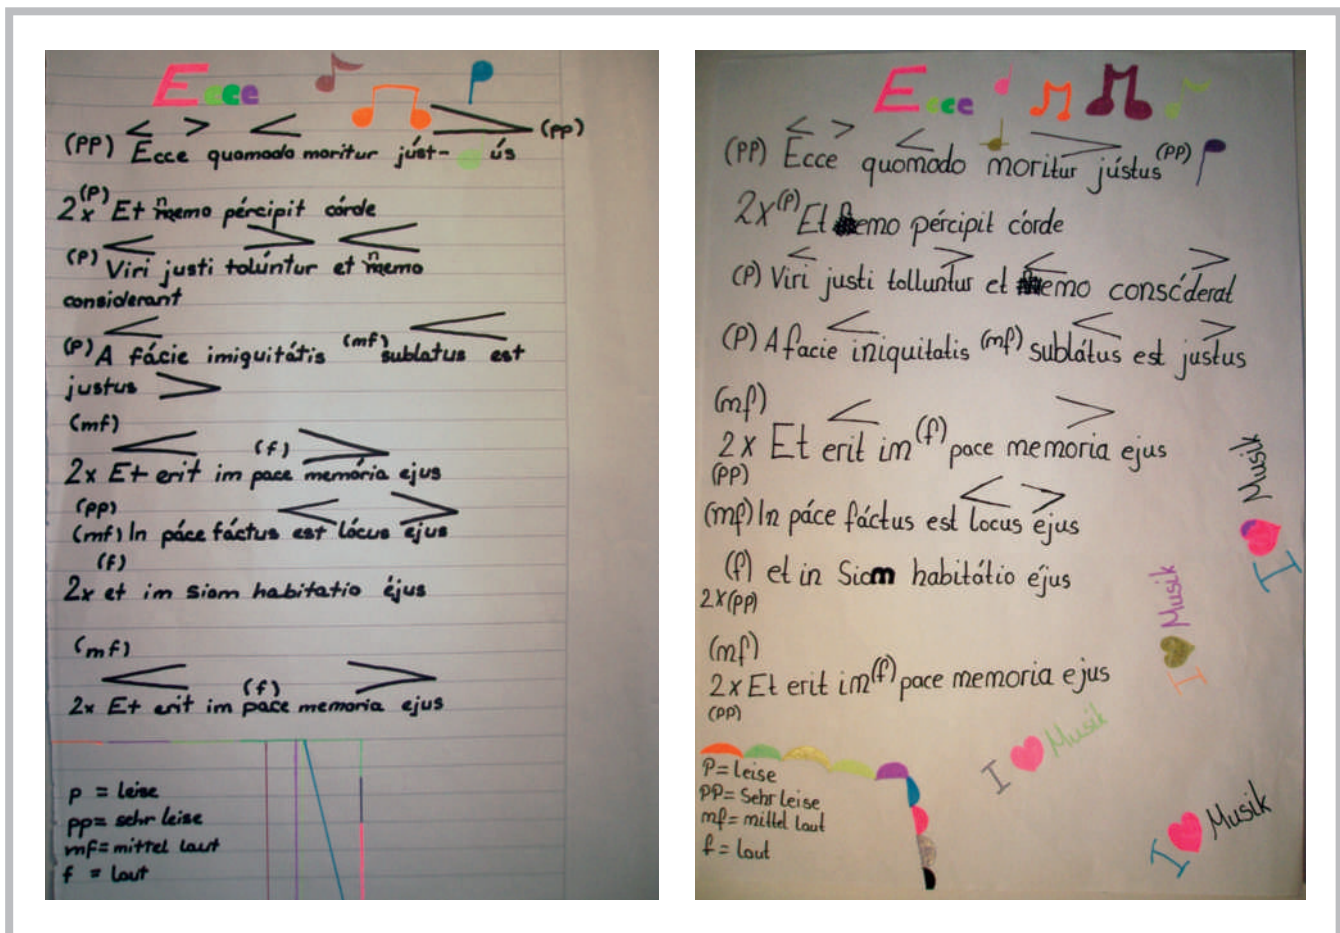 Ecce
(PP) Ecce quomodo moritur júst- ús (pp)
2x (P) Et nemo pércipit córde
(P) Viri justi tolúntur et nemo
considerant
(P) A fácie imiquitátis (mf) sublatus est
justus
(mf)
(f)
2x Et erit im pace memória ejus
(pp)
(mf) In páce fáctus est lócus ejus
(f)
2x et im Siom habitatio éjus
(mf)
(f)
2x Et erit im pace memoria ejus
p = leise
pp = sehr leise
mf = mittel laut
f = laut
Ecce
(PP) Ecce quomodo moritur jústus (PP)
2x (P) Et nemo pércipit córde
(P) Viri justi tolluntur et nemo
(P) A facie iniquitatis (mf) sublátus est justus
(mf)
2x Et erit im (f) pace memoria ejus
(PP)
(mf) In páce fáctus est locus ejus
(f) et in Siom habitátio éjus
2x (pp)
(mf)
2x Et erit im (f) pace memoria ejus
(PP)
P = leise
PP = Sehr leise
mf = mittel laut
f = laut
I ♥ Musik
I ♥ Musik
I ♥ Musik
I ♥ Musik